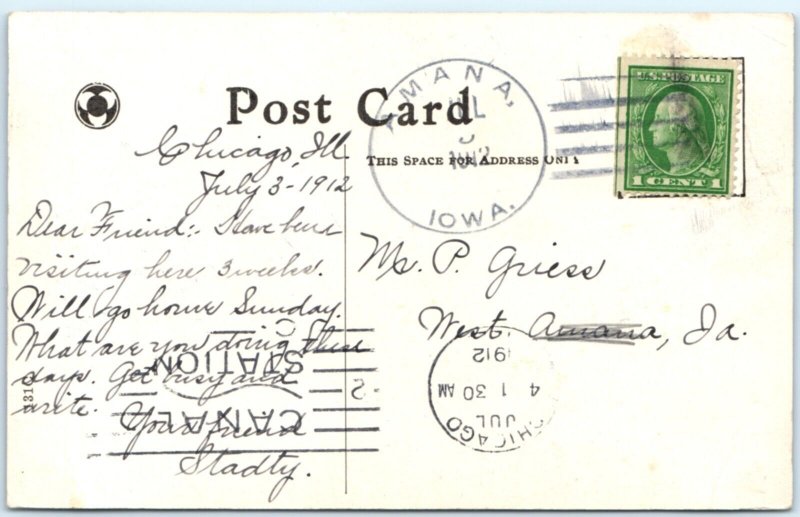 Post Card
THIS SPACE FOR ADDRESS ONLY
AMANA,
JUL
5
1912
IOWA.
U.S. POSTAGE
1 CENT 1
Chicago, Ill
July 3-1912
Dear Friend:- Have been
visiting here 3 weeks.
Will go home Sunday.
What are you doing these
days. Get busy and
write.
Your friend
Stadty.
Mr. P. Griess
West Amana, Ia.
CHICAGO
JUL
4 1 30 AM
1912
CANAL
STATION
2